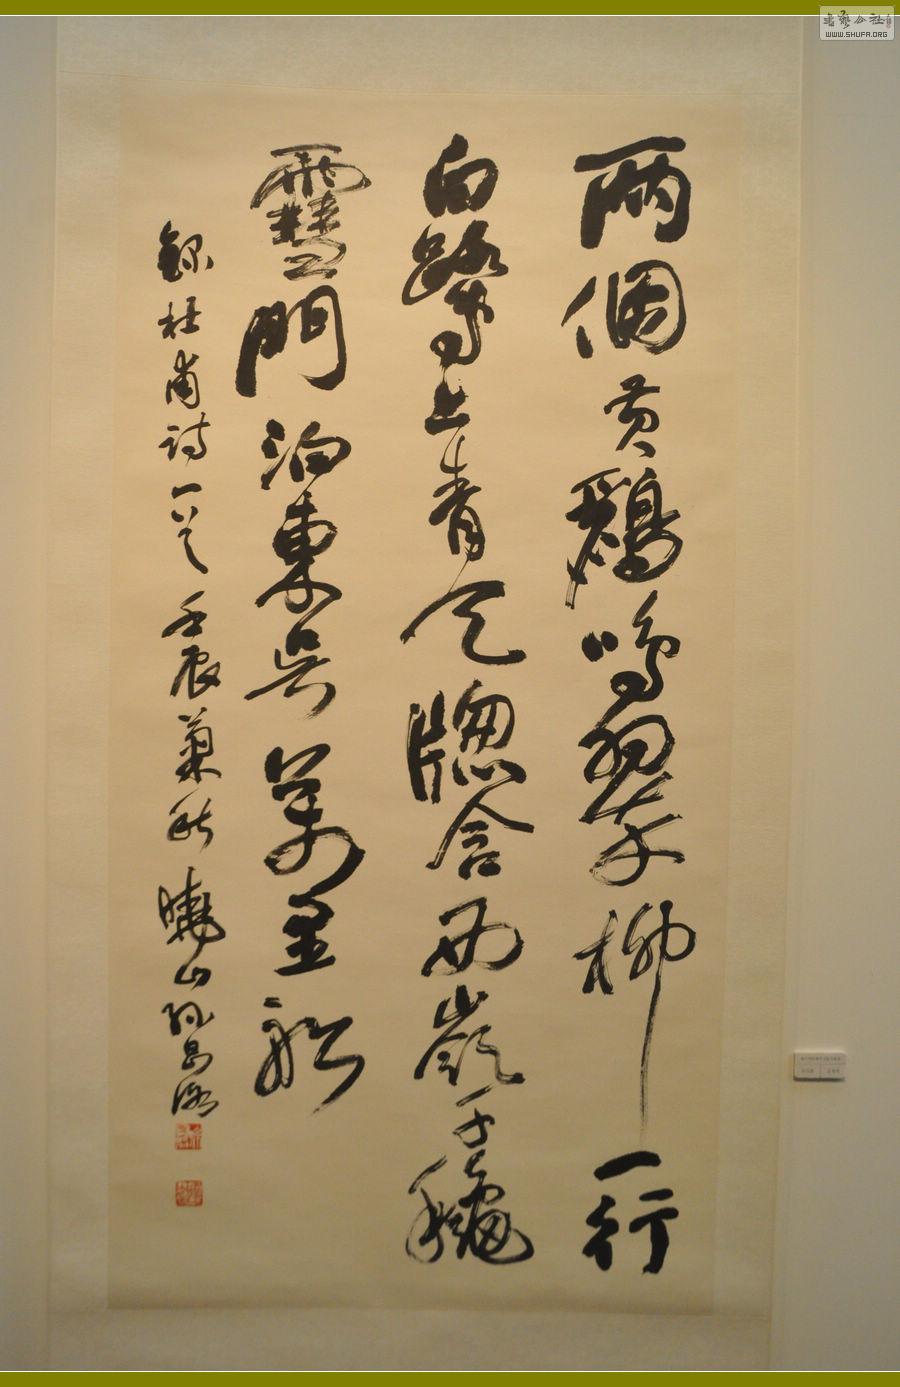 兩個黃鸝鳴翠柳一行
白鷺上青天窗含西嶺千秋
雪門泊東吳萬里船
錄杜甫詩一首壬辰蘭秋曉山
WWW.SHUFA.ORG